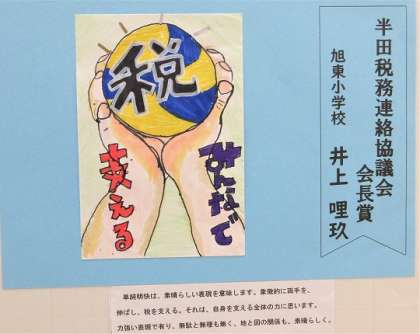 半田税務連絡協議会
会長賞
旭東小学校 井上 哩玖
税
みんなで
支える
単純明快は、素晴らしい表現を意味します。象徴的に両手を、
伸ばし、税を支える。それは、自身を支える全体の力に思います。
力強い表現で有り、無駄と無理も無く、地と図の関係も、素晴らしく。